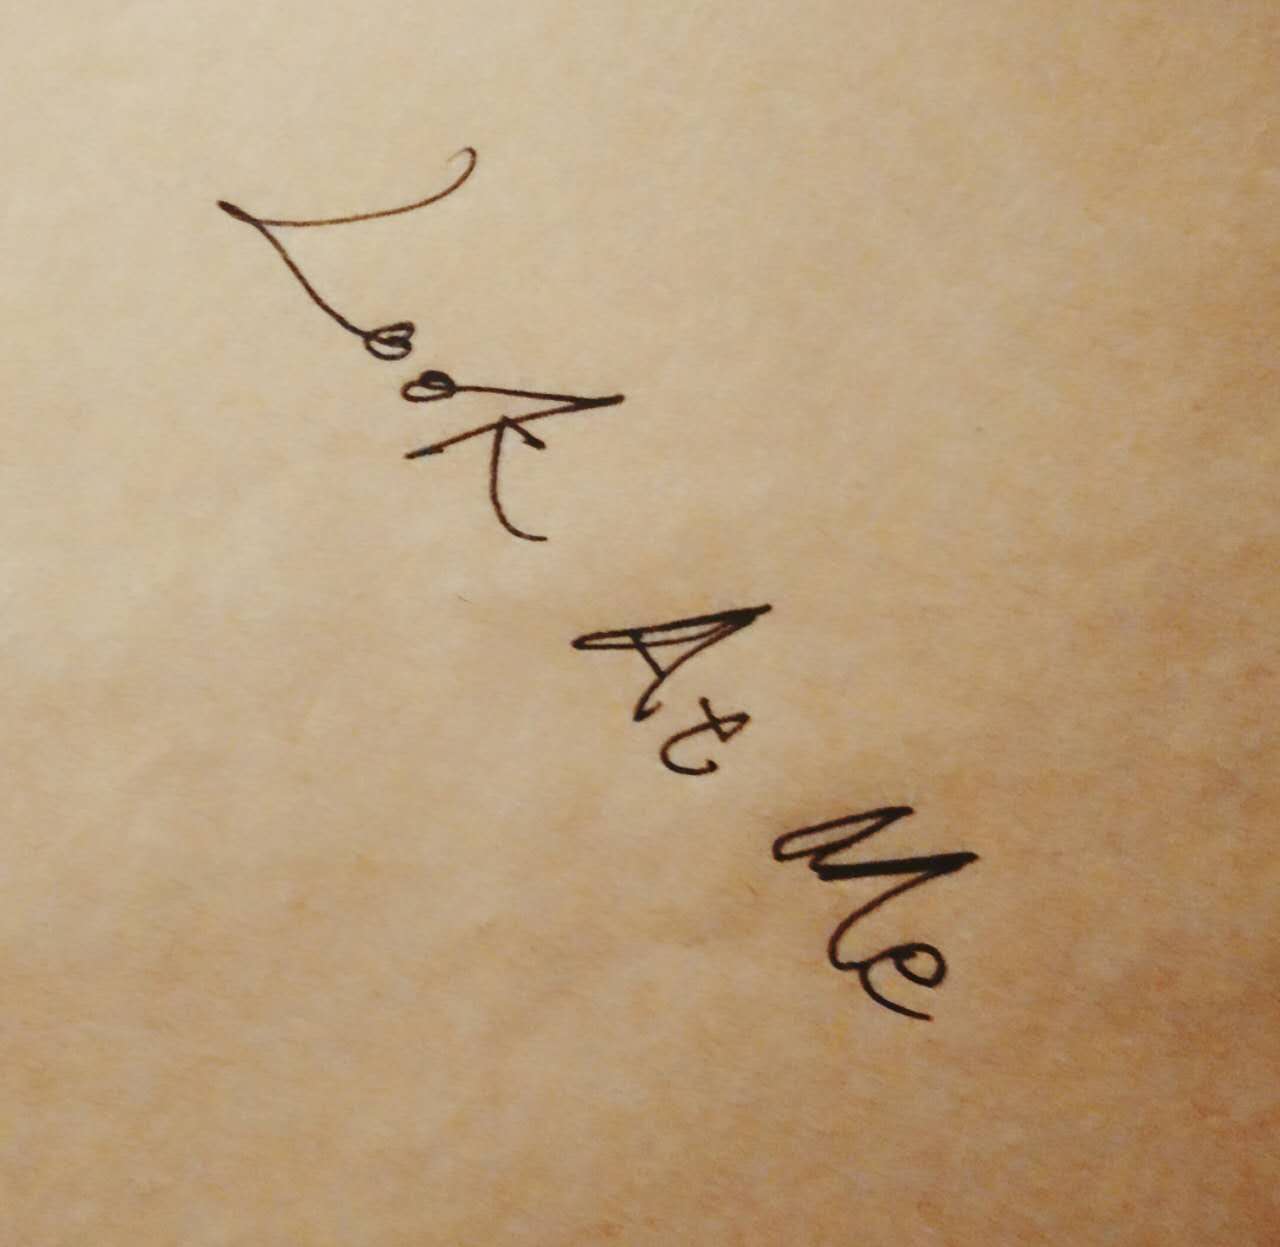 Look At Me